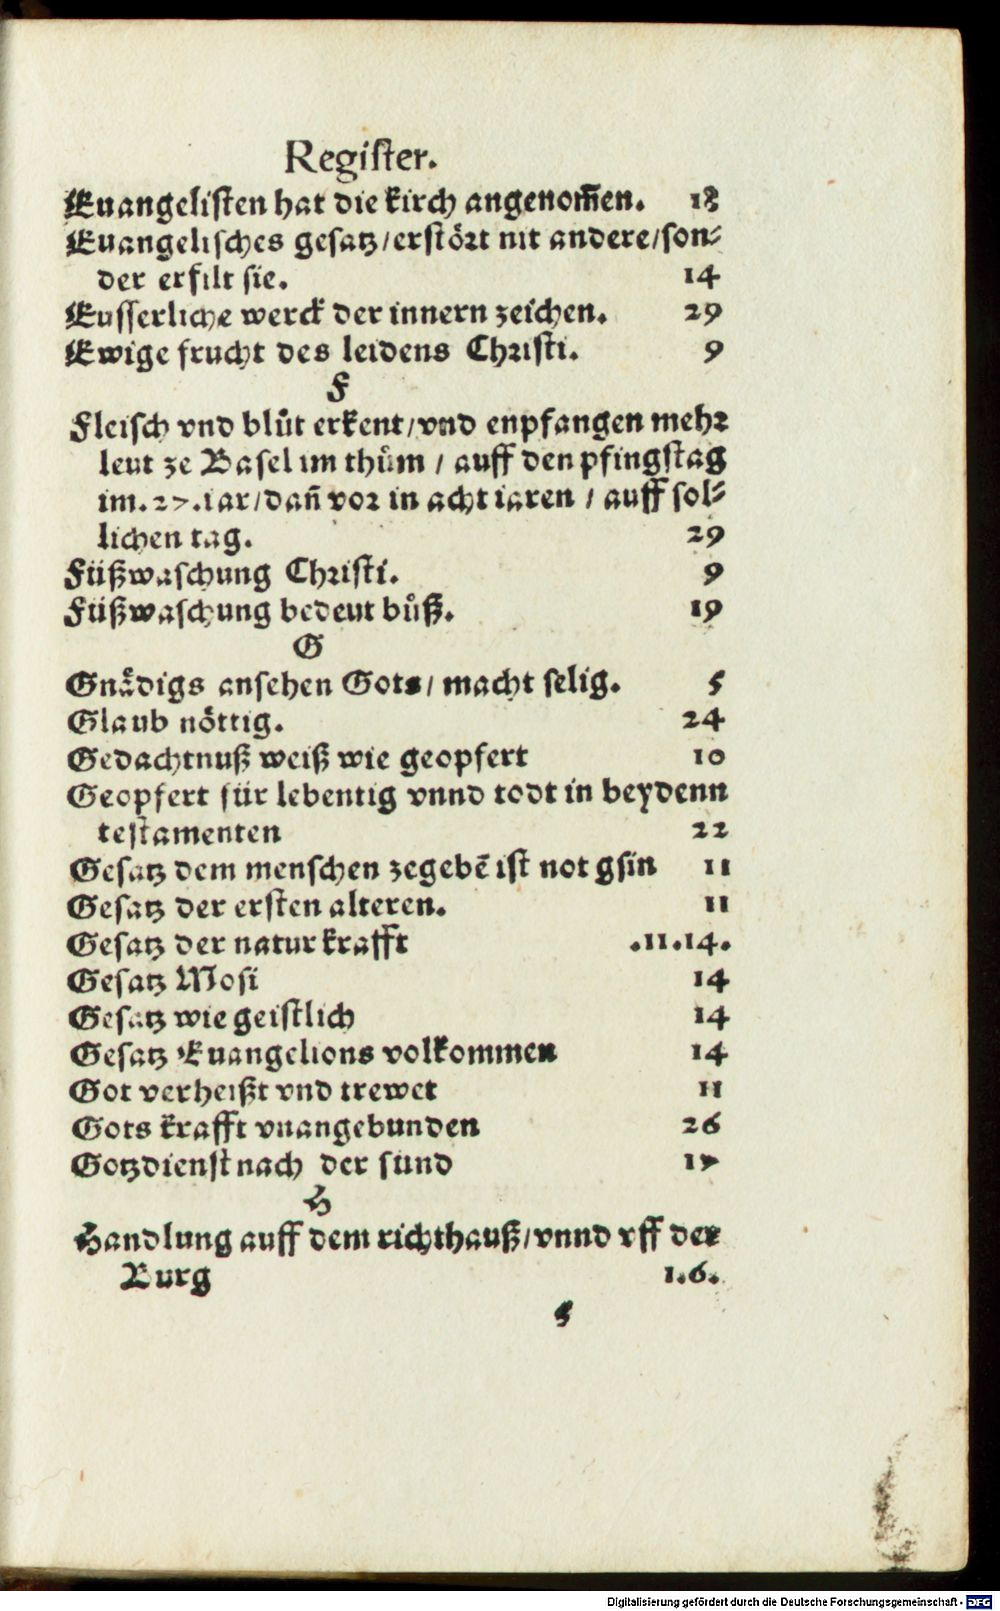 Regiſter.
Euangeliſten hat die kirch angenom̅en. 18
Euangeliſches geſatz/erſtört nit andere/ſon⸗
der erfilt ſie. 14
Euſſerliche werck der innern zeichen. 29
Ewige frucht des leidens Chriſti. 9
F
Fleiſch vnd blůt erkent/vnd enpfangen mehr
leut ze Baſel im thům / auff den pfingſtag
im.27.iar/dan̄ vor in acht iaren / auff ſol⸗
lichen tag. 29
Füßwaſchung Chriſti. 9
Füßwaſchung bedeut bůß. 19
G
Gnådigs anſehen Gots/ macht ſelig. 5
Glaub nöttig. 24
Gedachtnuß weiß wie geopfert 10
Geopfert für lebentig vnnd todt in beydenn
teſtamenten 22
Geſatz dem menſchen zegebē iſt not gſin 11
Geſatz der erſten alteren. 11
Geſatz der natur krafft .11.14.
Geſatz Moſi 14
Geſatz wie geiſtlich 14
Geſatz Euangelions volkommen 14
Got verheißt vnd trewet 11
Gots krafft vnangebunden 26
Gotzdienſt nach der ſund 17
H
Handlung auff dem richthauß/vnnd vff der
Burg 1.6.
Digitalisierung gefördert durch die Deutsche Forschungsgemeinschaft - DFG